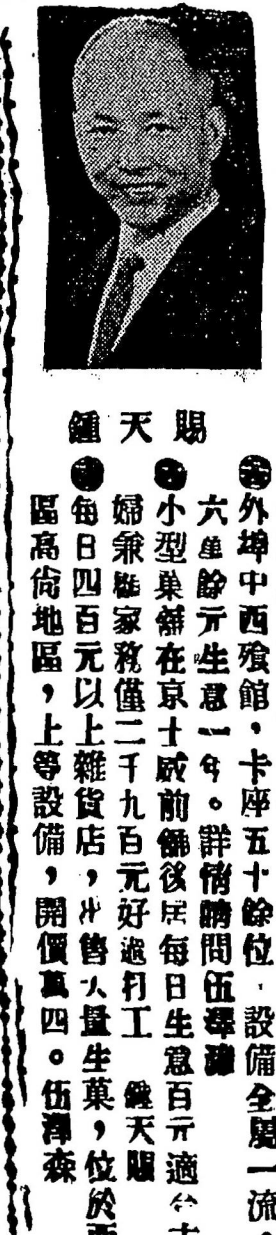 鍾天賜
外埠中西飱館，卡座五十餘位．設備全屬一流。
六萬餘元生意一年。詳情請問伍澤
小型菓舖在京士威前舖後居每日生意百元適合夫
婦兼家務僅二千九百元好過打工　鍾天賜
每日四百元以上雜貨店，出售大量生菓，位於西
區高尚地區，上等設備，開價萬四。伍澤森